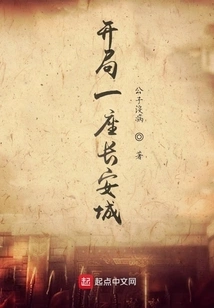 开局一座长安城
公子没病 ◎ 著
起点中文网